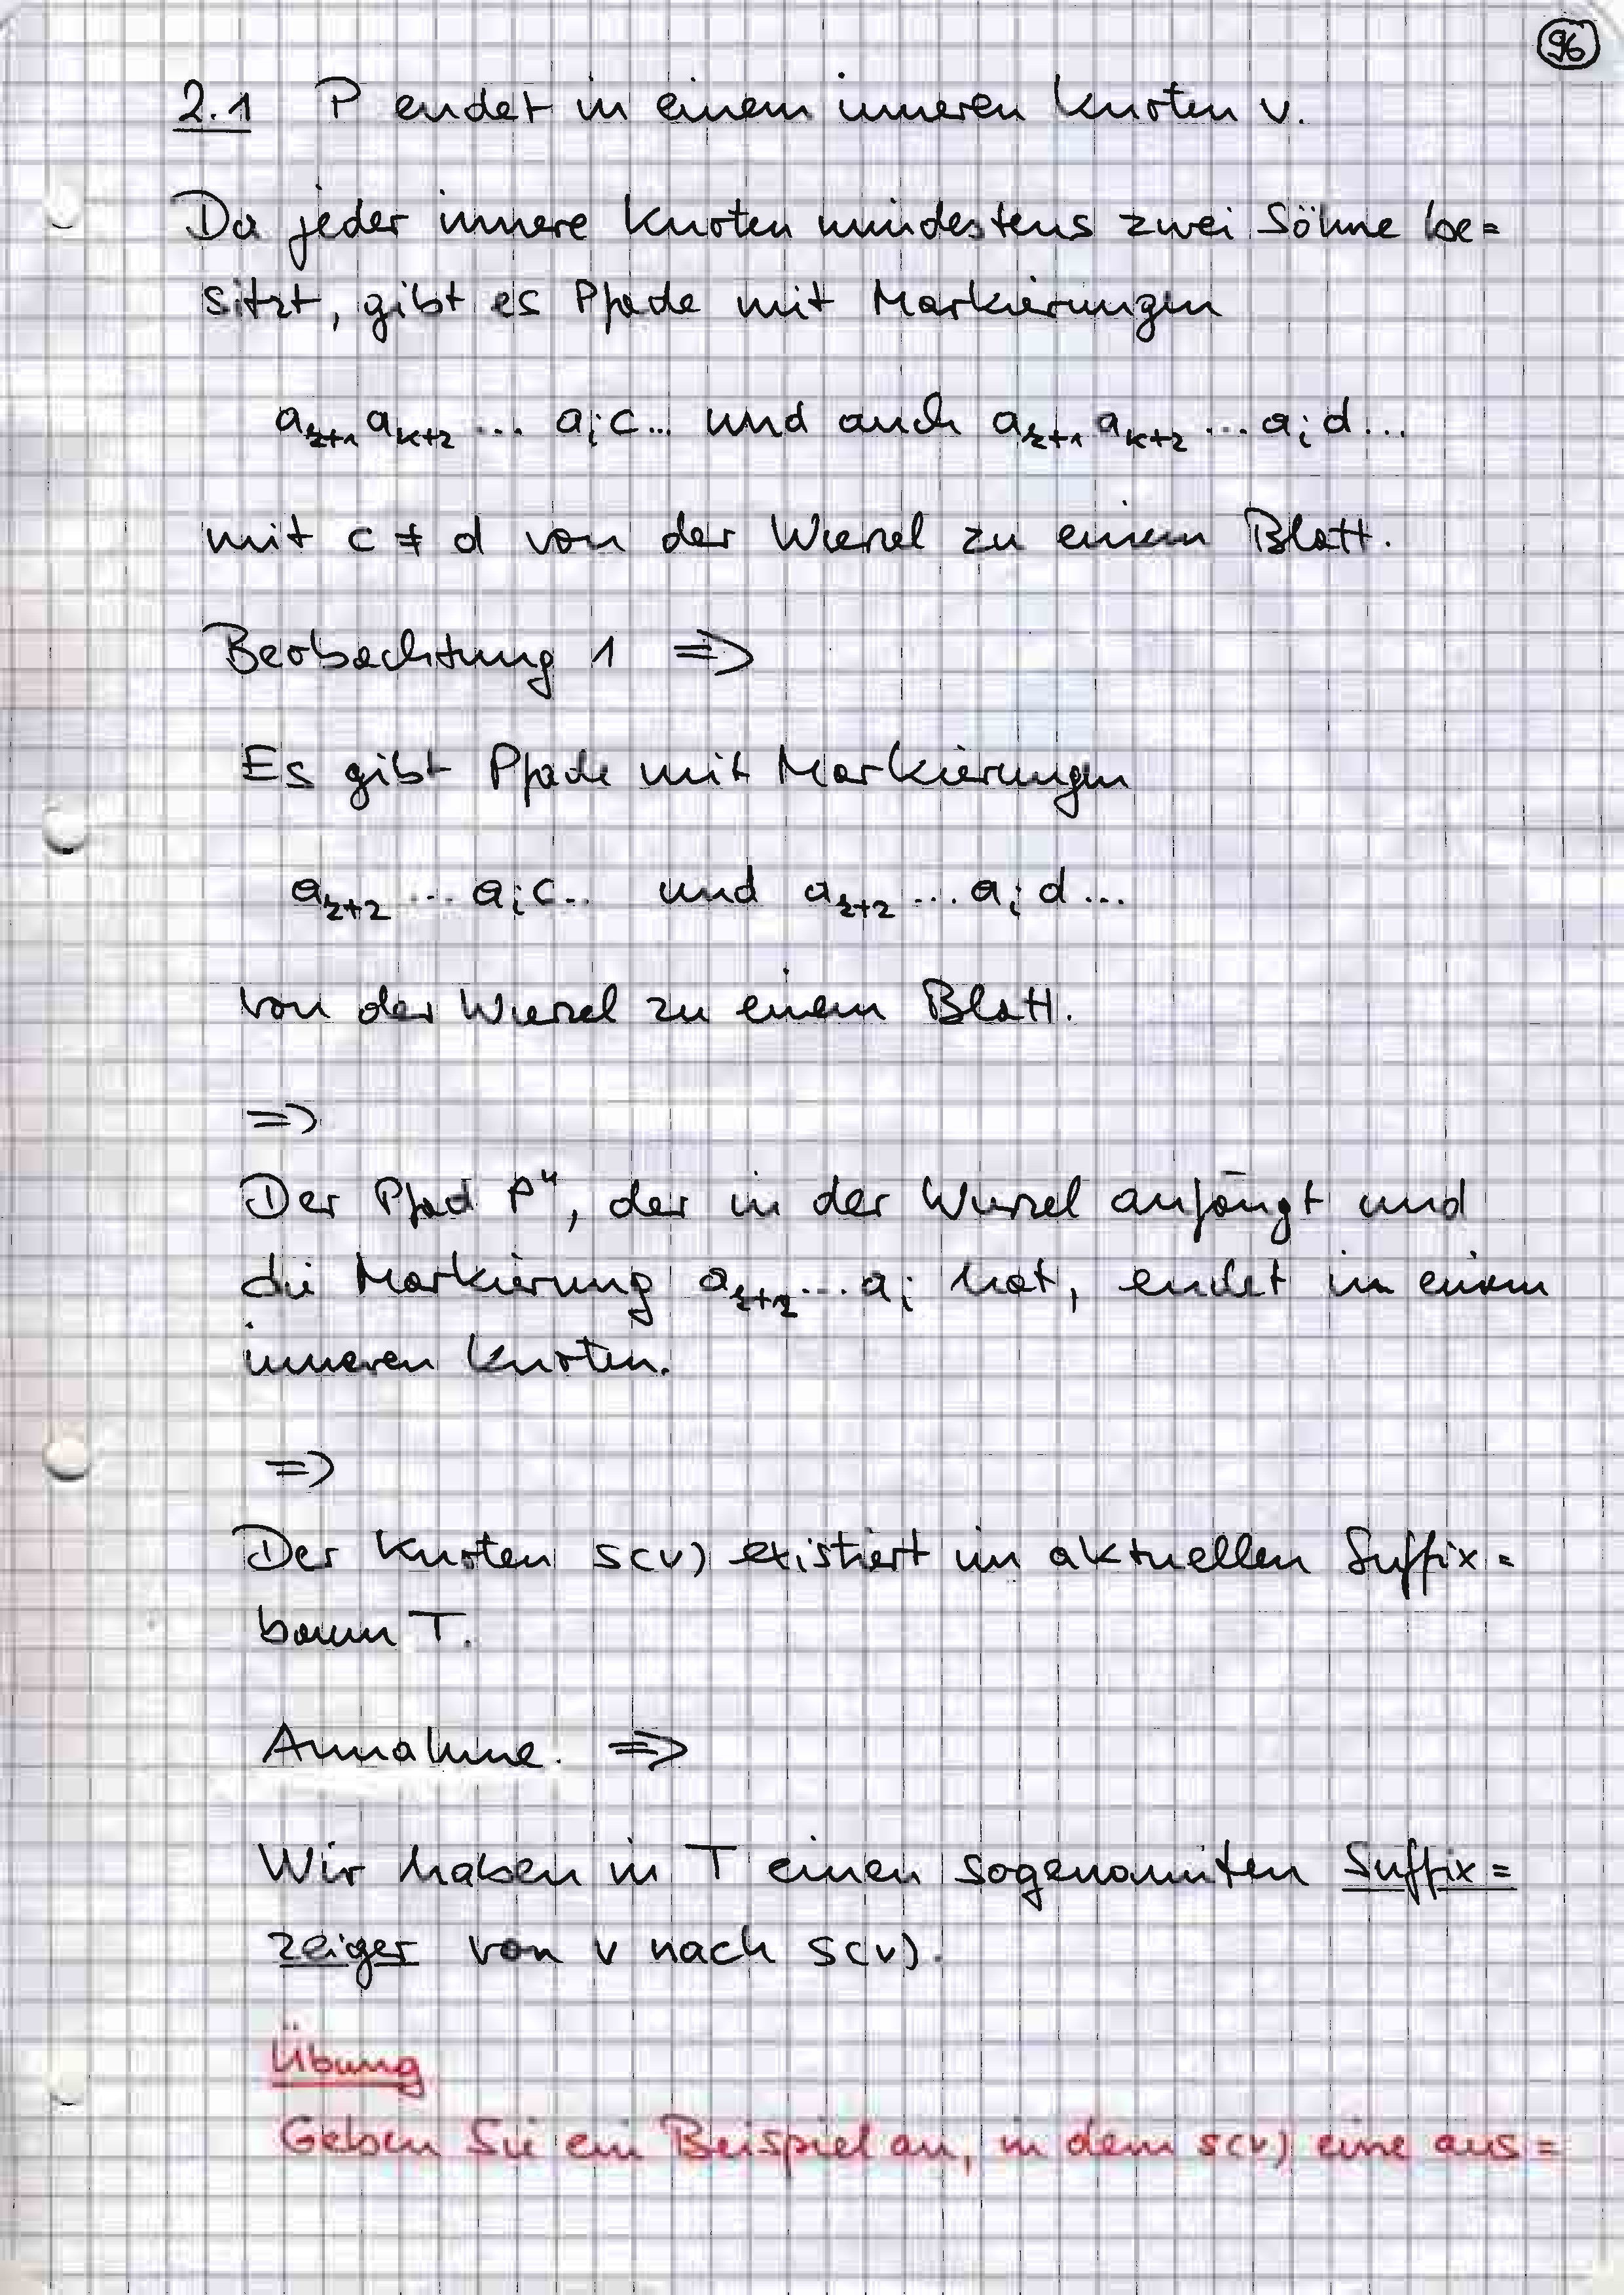 96
2.1 P endet in einem inneren Knoten v.
Da jeder innere Knoten mindestens zwei Söhne be=
sitzt, gibt es Pfade mit Markierungen
a_{k+1} a_{k+2} ... a_i c... und auch a_{k+1} a_{k+2} ... a_i d...
mit c ≠ d von der Wurzel zu einem Blatt.
Beobachtung 1 ⇒
Es gibt Pfade mit Markierungen
a_{k+2} ... a_i c... und a_{k+2} ... a_i d...
von der Wurzel zu einem Blatt.
⇒
Der Pfad P", der in der Wurzel anfängt und
die Markierung a_{k+2} ... a_i hat, endet in einem
inneren Knoten.
⇒
Der Knoten s(v) existiert im aktuellen Suffix=
baum T.
Annahme. ⇒
Wir haben in T einen sogenannten Suffix=
zeiger von v nach s(v).
Übung
Geben Sie ein Beispiel an, in dem s(v) eine aus=